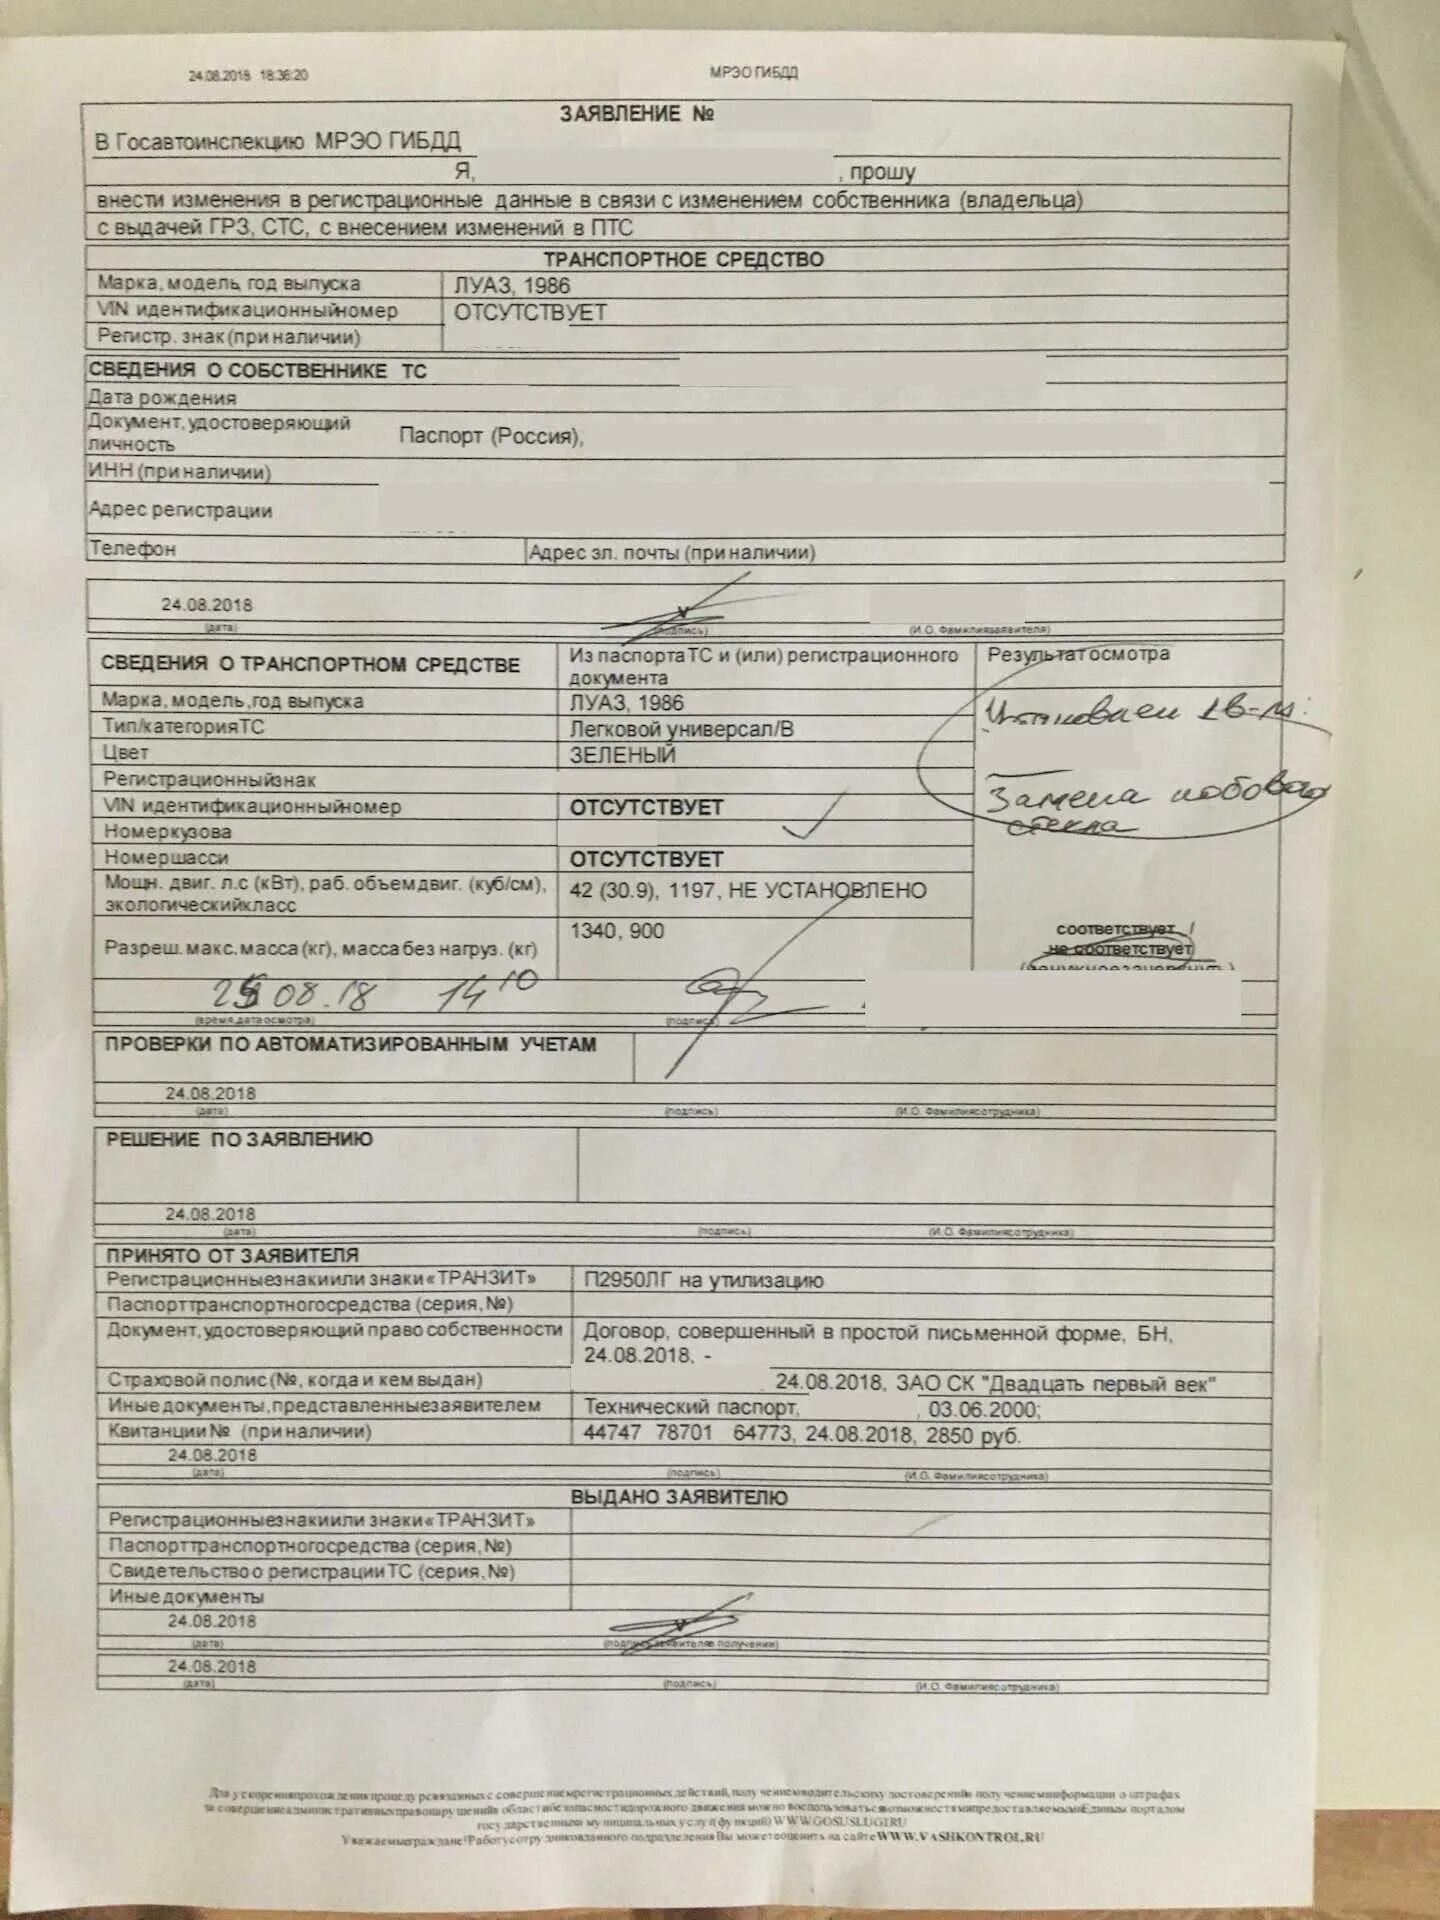 24.08.2018 18:36:20 МРЭО ГИБДД
ЗАЯВЛЕНИЕ №
В Госавтоинспекцию МРЭО ГИБДД
Я, , прошу
внести изменения в регистрационные данные в связи с изменением собственника (владельца)
с выдачей ГРЗ, СТС, с внесением изменений в ПТС
ТРАНСПОРТНОЕ СРЕДСТВО
Марка, модель, год выпуска ЛУАЗ, 1986
VIN идентификационный номер ОТСУТСТВУЕТ
Регистр. знак (при наличии)
СВЕДЕНИЯ О СОБСТВЕННИКЕ ТС
Дата рождения
Документ, удостоверяющий
личность Паспорт (Россия),
ИНН (при наличии)
Адрес регистрации
Телефон Адрес эл. почты (при наличии)
24.08.2018
(дата) (подпись) (И.О. Фамилия заявителя)
СВЕДЕНИЯ О ТРАНСПОРТНОМ СРЕДСТВЕ Из паспорта ТС и (или) регистрационного Результат осмотра
документа
Марка, модель, год выпуска ЛУАЗ, 1986
Тип/категория ТС Легковой универсал/В
Цвет ЗЕЛЕНЫЙ
Регистрационный знак
VIN идентификационный номер ОТСУТСТВУЕТ Замена лобового
Номер кузова стекла
Номер шасси ОТСУТСТВУЕТ
Мощн. двиг. л.с (кВт), раб. объем двиг. (куб/см), 42 (30.9), 1197, НЕ УСТАНОВЛЕНО
экологический класс
Разреш. макс. масса (кг), масса без нагруз. (кг) 1340, 900 соответствует /
не соответствует
(ненужное зачеркнуть)
25 08.18 14 10
(время, дата осмотра) (подпись)
ПРОВЕРКИ ПО АВТОМАТИЗИРОВАННЫМ УЧЕТАМ
24.08.2018
(дата) (подпись) (И.О. Фамилия сотрудника)
РЕШЕНИЕ ПО ЗАЯВЛЕНИЮ
24.08.2018
(дата) (подпись) (И.О. Фамилия сотрудника)
ПРИНЯТО ОТ ЗАЯВИТЕЛЯ
Регистрационные знаки или знаки «ТРАНЗИТ» П2950ЛГ на утилизацию
Паспорт транспортного средства (серия, №)
Документ, удостоверяющий право собственности Договор, совершенный в простой письменной форме, БН,
24.08.2018, -
Страховой полис (№, когда и кем выдан) , 24.08.2018, ЗАО СК "Двадцать первый век"
Иные документы, представленные заявителем Технический паспорт, , 03.06.2000;
Квитанции № (при наличии) 44747 78701 64773, 24.08.2018, 2850 руб.
24.08.2018
(дата) (подпись) (И.О. Фамилия сотрудника)
ВЫДАНО ЗАЯВИТЕЛЮ
Регистрационные знаки или знаки «ТРАНЗИТ»
Паспорт транспортного средства (серия, №)
Свидетельство о регистрации ТС (серия, №)
Иные документы
24.08.2018
(дата) (подпись заявителя в получении)
24.08.2018
(дата) (подпись) (И.О. Фамилия сотрудника)
Для ускорения прохождения процедур связанных с совершением регистрационных действий, получением водительских удостоверений и получением информации о штрафах
за совершение административных правонарушений в области безопасности дорожного движения можно воспользоваться возможностями предоставляемыми Единым порталом
государственных и муниципальных услуг (функций) WWW.GOSUSLUGI.RU
Уважаемые граждане! Работу сотрудников данного подразделения Вы можете оценить на сайте WWW.VASHKONTROL.RU